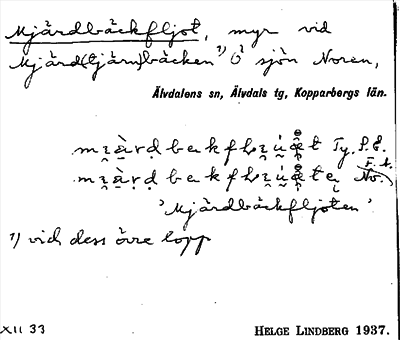 Mjärdbäckfljot, myr vid
Mjärd(tjärn)bäcken¹⁾ Ö sjön Noren,
Älvdalens sn, Älvdals tg, Kopparbergs län.
Ty. P.E.
F.A.
Nv.
'Mjärdbäckfljoten'
¹⁾ vid dess övre lopp
XII 33
HELGE LINDBERG 1937.